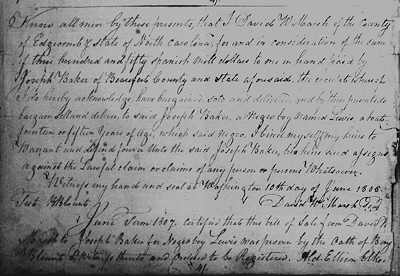 Know all men by these presents, that I David W. Marsh of the County
of Edgecomb & State of North Carolina, for and in consideration of the sum
of three hundred and fifty Spanish mill dollars to me in hand paid by
Joseph Baker of Beaufort County and State aforesaid, the receipt whereof
I do hereby acknowledge, have bargained sold and delivered, and by these presents do
bargain sell and deliver to said Joseph Baker, a Negro boy named Lewis about
fourteen or fifteen Years of age, which said negro, I bind myself my heirs to
Warrant and defend forever Unto the said Joseph Baker, his heirs and assigns
against the Lawful claim or claims of any person or persons Whatsoever.
Witness my hand and seal at Washington 10th day of June 1806.
Test B Blount David W. Marsh
June Term 1807. Certified that this bill of Sale from David W
Marsh to Joseph Baker for Negro boy Lewis was proven by the Oath of
Blount Witness thereto and Ordered to be Registered.